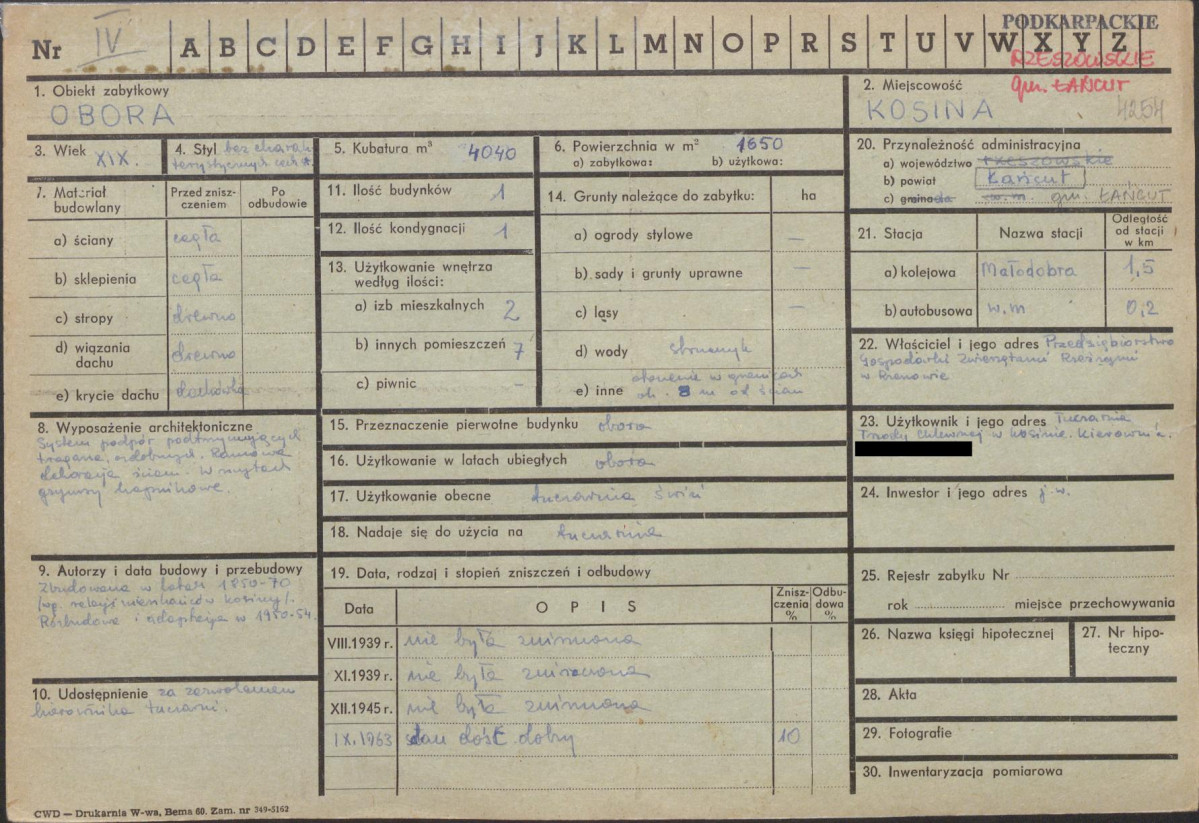 Nr IV A B C D E F G H I J K L M N O P R S T U V W X Y Z
PODKARPACKIE
RZESZOWSKIE
gm. ŁAŃCUT
1. Obiekt zabytkowy
OBORA
2. Miejscowość
KOSINA 4254
3. Wiek XIX.
4. Styl bez charak
terystycznych cech st.
5. Kubatura m³ 4040
6. Powierzchnia w m² 1650
a) zabytkowa: b) użytkowa:
7. Materiał budowlany
Przed zniszczeniem
Po odbudowie
a) ściany cegła
b) sklepienia cegła
c) stropy drewno
d) wiązania dachu drewno
e) krycie dachu dachówka
8. Wyposażenie architektoniczne
System podpór podtrzymujących
dekoracja ścian. W szczytach
gzymsy kapnikowe.
9. Autorzy i data budowy i przebudowy
Zbudowana w latach 1850-70
/wg. relacji mieszkańców Kosiny/.
Rozbudowa i adaptacja w 1950-54.
10. Udostępnienie za zezwoleniem
kierownika tuczarni.
11. Ilość budynków 1
12. Ilość kondygnacji 1
13. Użytkowanie wnętrza
według ilości:
a) izb mieszkalnych 2
b) innych pomieszczeń 7
c) piwnic –
14. Grunty należące do zabytku: ha
a) ogrody stylowe –
b) sady i grunty uprawne –
c) lasy –
d) wody strumyk
e) inne otoczenie w granicach
ok. 8 m od ścian
15. Przeznaczenie pierwotne budynku obora
16. Użytkowanie w latach ubiegłych obora
17. Użytkowanie obecne tuczarnia świń
18. Nadaje się do użycia na tuczarnia
19. Data, rodzaj i stopień zniszczeń i odbudowy
Data OPIS Zniszczenia % Odbudowa %
VIII.1939 r. nie była zniszczona
XI.1939 r. nie była zniszczona
XII.1945 r. nie była zniszczona
IX.1963 stan dość dobry 10
20. Przynależność administracyjna
a) województwo rzeszowskie
b) powiat Łańcut
c) gmina w.m. gm. ŁAŃCUT
21. Stacja Nazwa stacji Odległość od stacji w km
a) kolejowa Małodobra 1,5
b) autobusowa w.m 0,2
22. Właściciel i jego adres Przedsiębiorstwo
Gospodarki Zwierzętami Rzeźnymi
23. Użytkownik i jego adres Tuczarnia
Trzody Chlewnej w Kosinie. Kierownik.
24. Inwestor i jego adres j.w.
25. Rejestr zabytku Nr
rok miejsce przechowywania
26. Nazwa księgi hipotecznej
27. Nr hipoteczny
28. Akta
29. Fotografie
30. Inwentaryzacja pomiarowa
CWD — Drukarnia W-wa, Bema 60. Zam. nr 349-5162